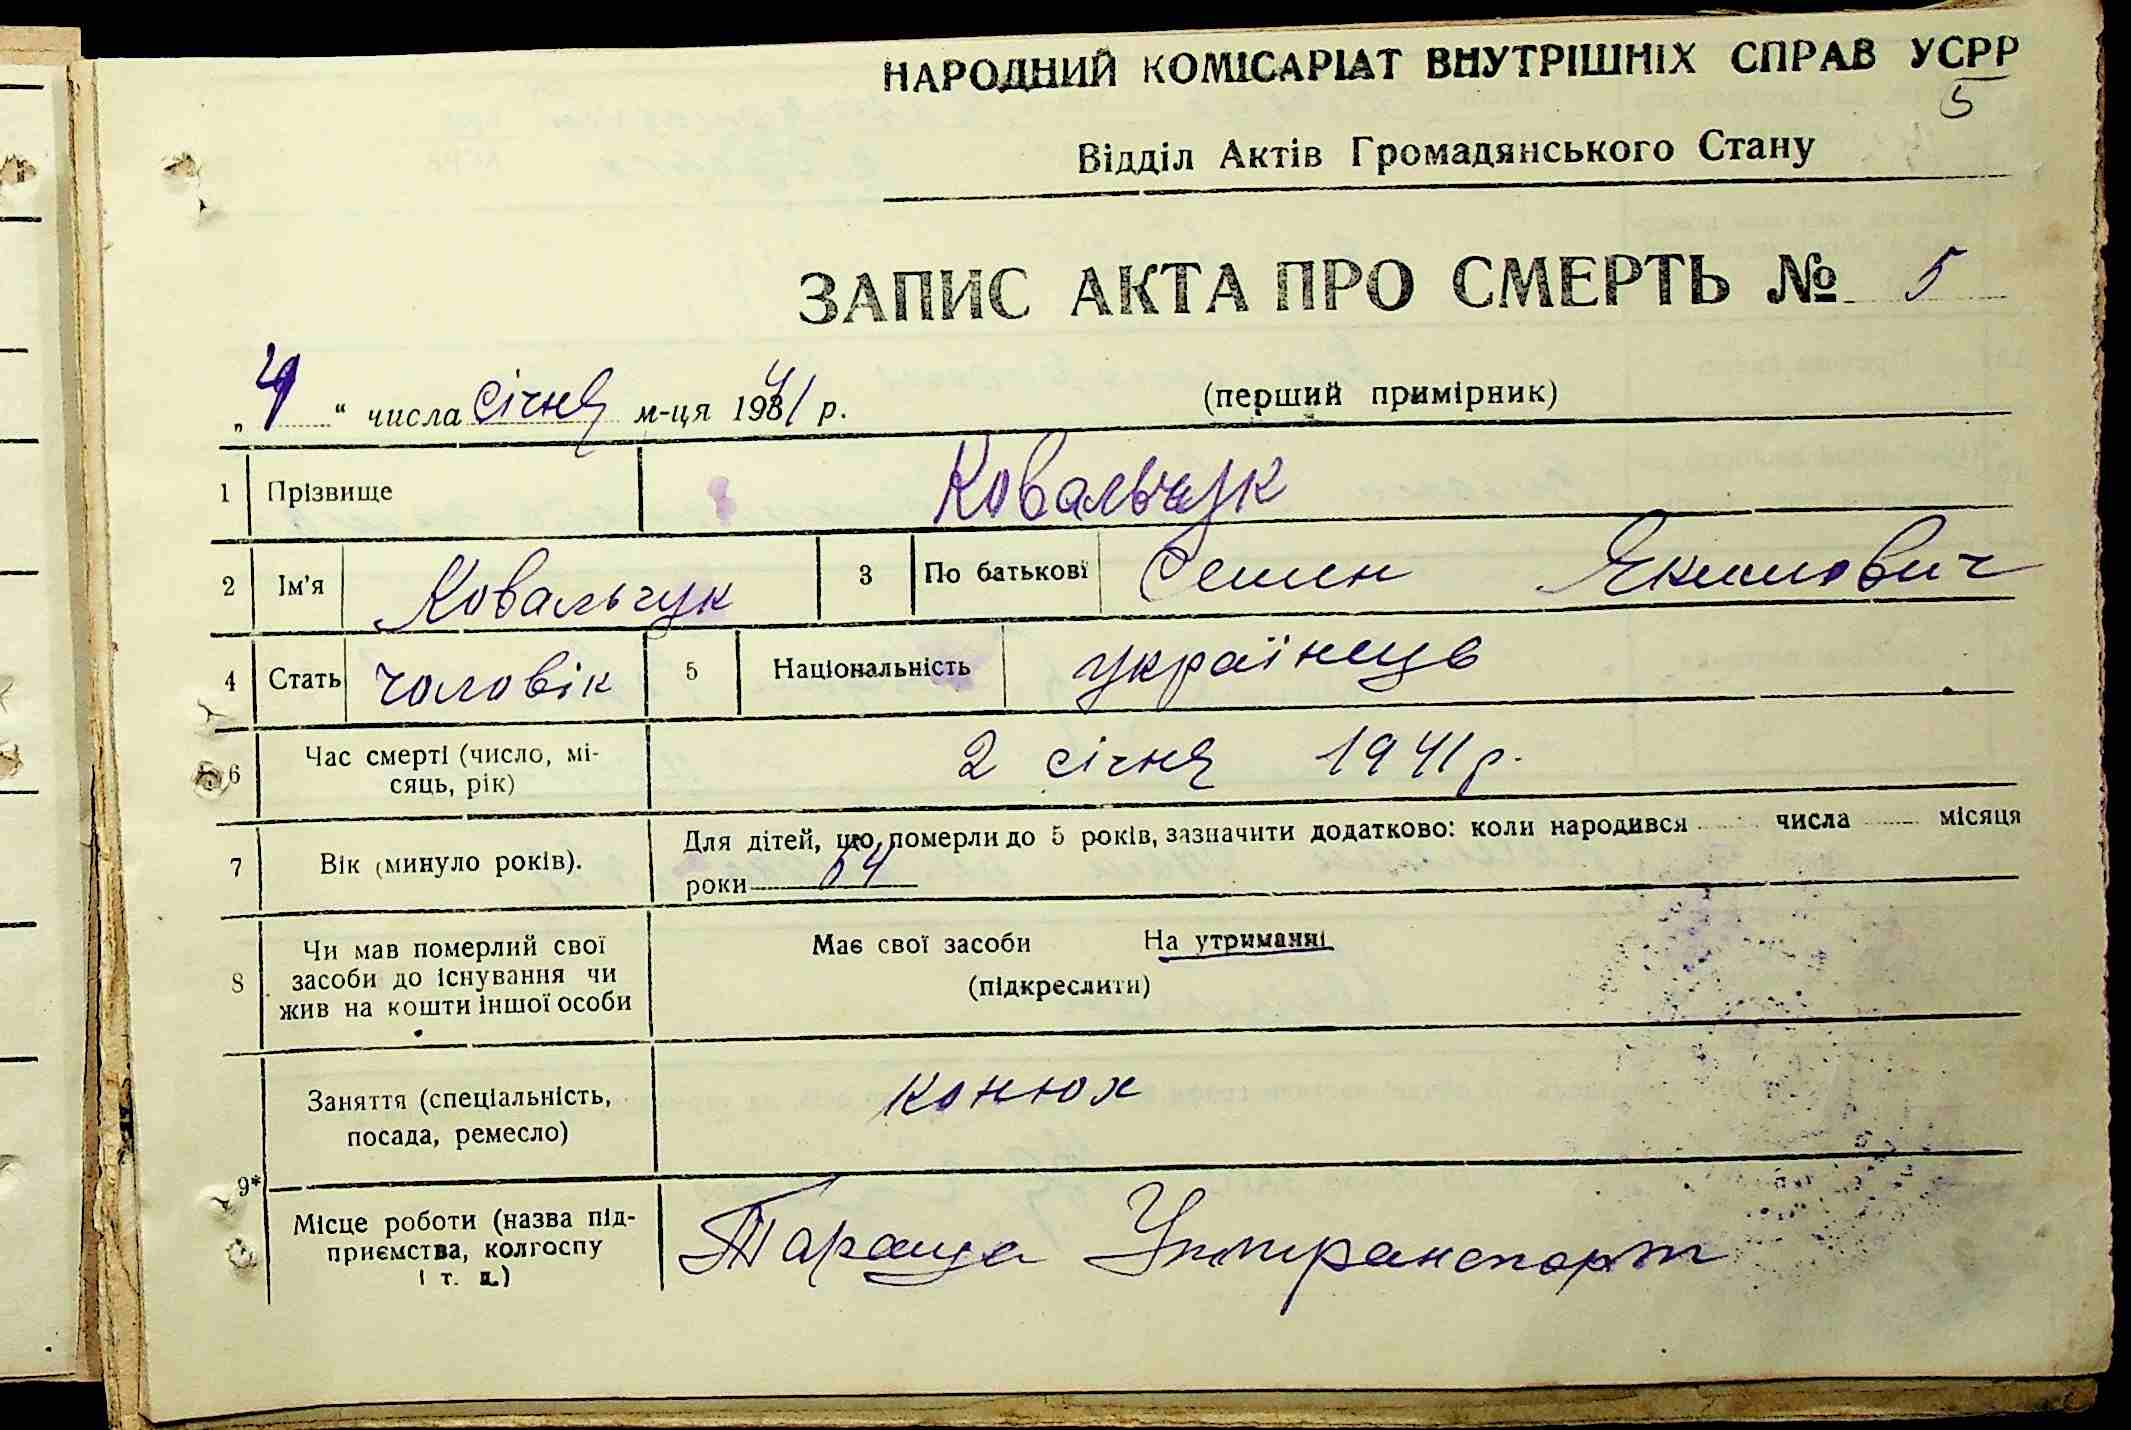 НАРОДНИЙ КОМІСАРІАТ ВНУТРІШНІХ СПРАВ УСРР
5
Відділ Актів Громадянського Стану
ЗАПИС АКТА ПРО СМЕРТЬ № 5
„4“ числа січня м-ця 1941 р. (перший примірник)
1 Прізвище Ковальчук
2 Ім'я Ковальчук 3 По батькові Семен Якимович
4 Стать чоловік 5 Національність українець
6 Час смерті (число, мі-
сяць, рік) 2 січня 1941 р.
7 Вік (минуло років). Для дітей, що померли до 5 років, зазначити додатково: коли народився числа місяця
роки 64
8 Чи мав померлий свої
засоби до існування чи
жив на кошти іншої особи
Має свої засоби На утриманні
(підкреслити)
9* Заняття (спеціальність,
посада, ремесло) конюх
Місце роботи (назва під-
приємства, колгоспу
і т. д.) Тараща